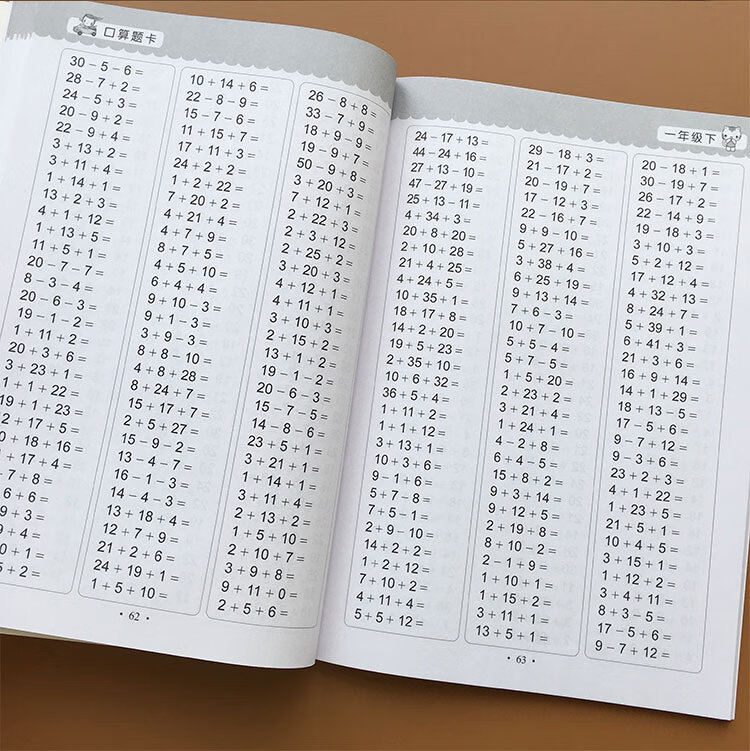 口算题卡
30－5－6＝
28－7＋2＝
24－5＋3＝
20－9＋2＝
22－9＋4＝
3＋13＋2＝
3＋11＋4＝
1＋14＋1＝
13＋2＋3＝
4＋1＋12＝
1＋13＋5＝
11＋5＋1＝
20－7－7＝
8－3－4＝
20－6－3＝
19－1－2＝
1＋11＋2＝
20＋3＋6＝
3＋23＋1＝
1＋1＋22＝
19＋1＋23＝
2＋17＋5＝
0＋18＋16＝
＋17＋4＝
＋7＋8＝
＋6＋6＝
9＋3＝
＋7＋9＝
0＋1＝
5＋2＝
10＋14＋6＝
22－8－9＝
15－7－6＝
11＋15＋7＝
17＋11＋3＝
24＋2＋2＝
1＋2＋22＝
7＋20＋2＝
4＋21＋4＝
4＋7＋9＝
8＋7＋5＝
4＋5＋10＝
4＋6＋6＝
9＋10－3＝
9＋1－3＝
3＋9－3＝
8＋8－10＝
4＋8＋28＝
8＋24＋7＝
15＋17＋7＝
2＋5＋27＝
15－9－2＝
13－4－7＝
16－1－3＝
14－4－3＝
13＋18＋4＝
12＋7＋9＝
22＋7＋2＝
24＋19＋1＝
1＋5＋10＝
26－8＋8＝
33－7＋9＝
18＋9－9＝
19－9＋7＝
50－9＋8＝
3＋20＋3＝
7＋12＋1＝
2＋22＋3＝
2＋3＋12＝
2＋25＋2＝
3＋20＋3＝
4＋12＋1＝
4＋11＋1＝
3＋10＋3＝
2＋15＋2＝
13＋1＋2＝
19－1－2＝
20－6－3＝
15－7－5＝
14－8－6＝
23＋5＋1＝
3＋21＋1＝
1＋14＋1＝
3＋11＋4＝
2＋13＋2＝
1＋20＋5＝
2＋10＋7＝
3＋9＋8＝
9＋11＋0＝
2＋5＋6＝
· 62 ·
一年级下
24－17＋13＝
44－24＋16＝
27＋13－10＝
47－27＋19＝
25＋13－11＝
4＋34＋3＝
20＋8＋20＝
2＋10＋28＝
21＋4＋25＝
4＋21＋5＝
10＋35＋1＝
18＋17＋8＝
14＋2＋20＝
19＋5＋23＝
2＋35＋10＝
10＋6＋32＝
36＋5＋4＝
1＋11＋2＝
1＋1＋12＝
3＋13＋1＝
10＋3＋6＝
9－1＋6＝
5＋7－8＝
7＋5－1＝
2＋9－10＝
14＋2＋2＝
1＋2＋12＝
7＋10＋2＝
4＋11＋4＝
5＋5＋12＝
29－18＋3＝
21－17＋2＝
20－19＋7＝
17－12＋3＝
22－16＋7＝
9＋9－10＝
5＋27＋16＝
3＋38＋4＝
6＋25＋19＝
9＋13＋14＝
7＋6－3＝
10＋7－10＝
5＋5－4＝
5＋7－5＝
1＋5＋20＝
2＋23＋2＝
3＋21＋4＝
1＋24＋1＝
4－2＋8＝
6＋4－5＝
15＋8＋2＝
9＋3＋14＝
2＋19＋8＝
8＋10－2＝
2－1＋9＝
1＋10＋1＝
1＋15＋2＝
3＋11＋1＝
13＋5＋1＝
20－18＋1＝
30－19＋7＝
26－17＋2＝
22－14＋9＝
19－18＋3＝
3＋10＋3＝
5＋2＋12＝
17＋12＋4＝
4＋32＋13＝
8＋24＋7＝
5＋39＋1＝
6＋41＋3＝
21＋3＋6＝
16＋9＋14＝
14＋1＋29＝
18＋13－5＝
17－6＋9＝
9－7＋12＝
9－3＋6＝
23＋2＋3＝
4＋1＋22＝
1＋23＋5＝
21＋5＋1＝
10＋4＋5＝
3＋15＋1＝
1＋12＋2＝
3＋11＋4＝
8＋3－5＝
17－5＋6＝
9－7＋12＝
· 63 ·